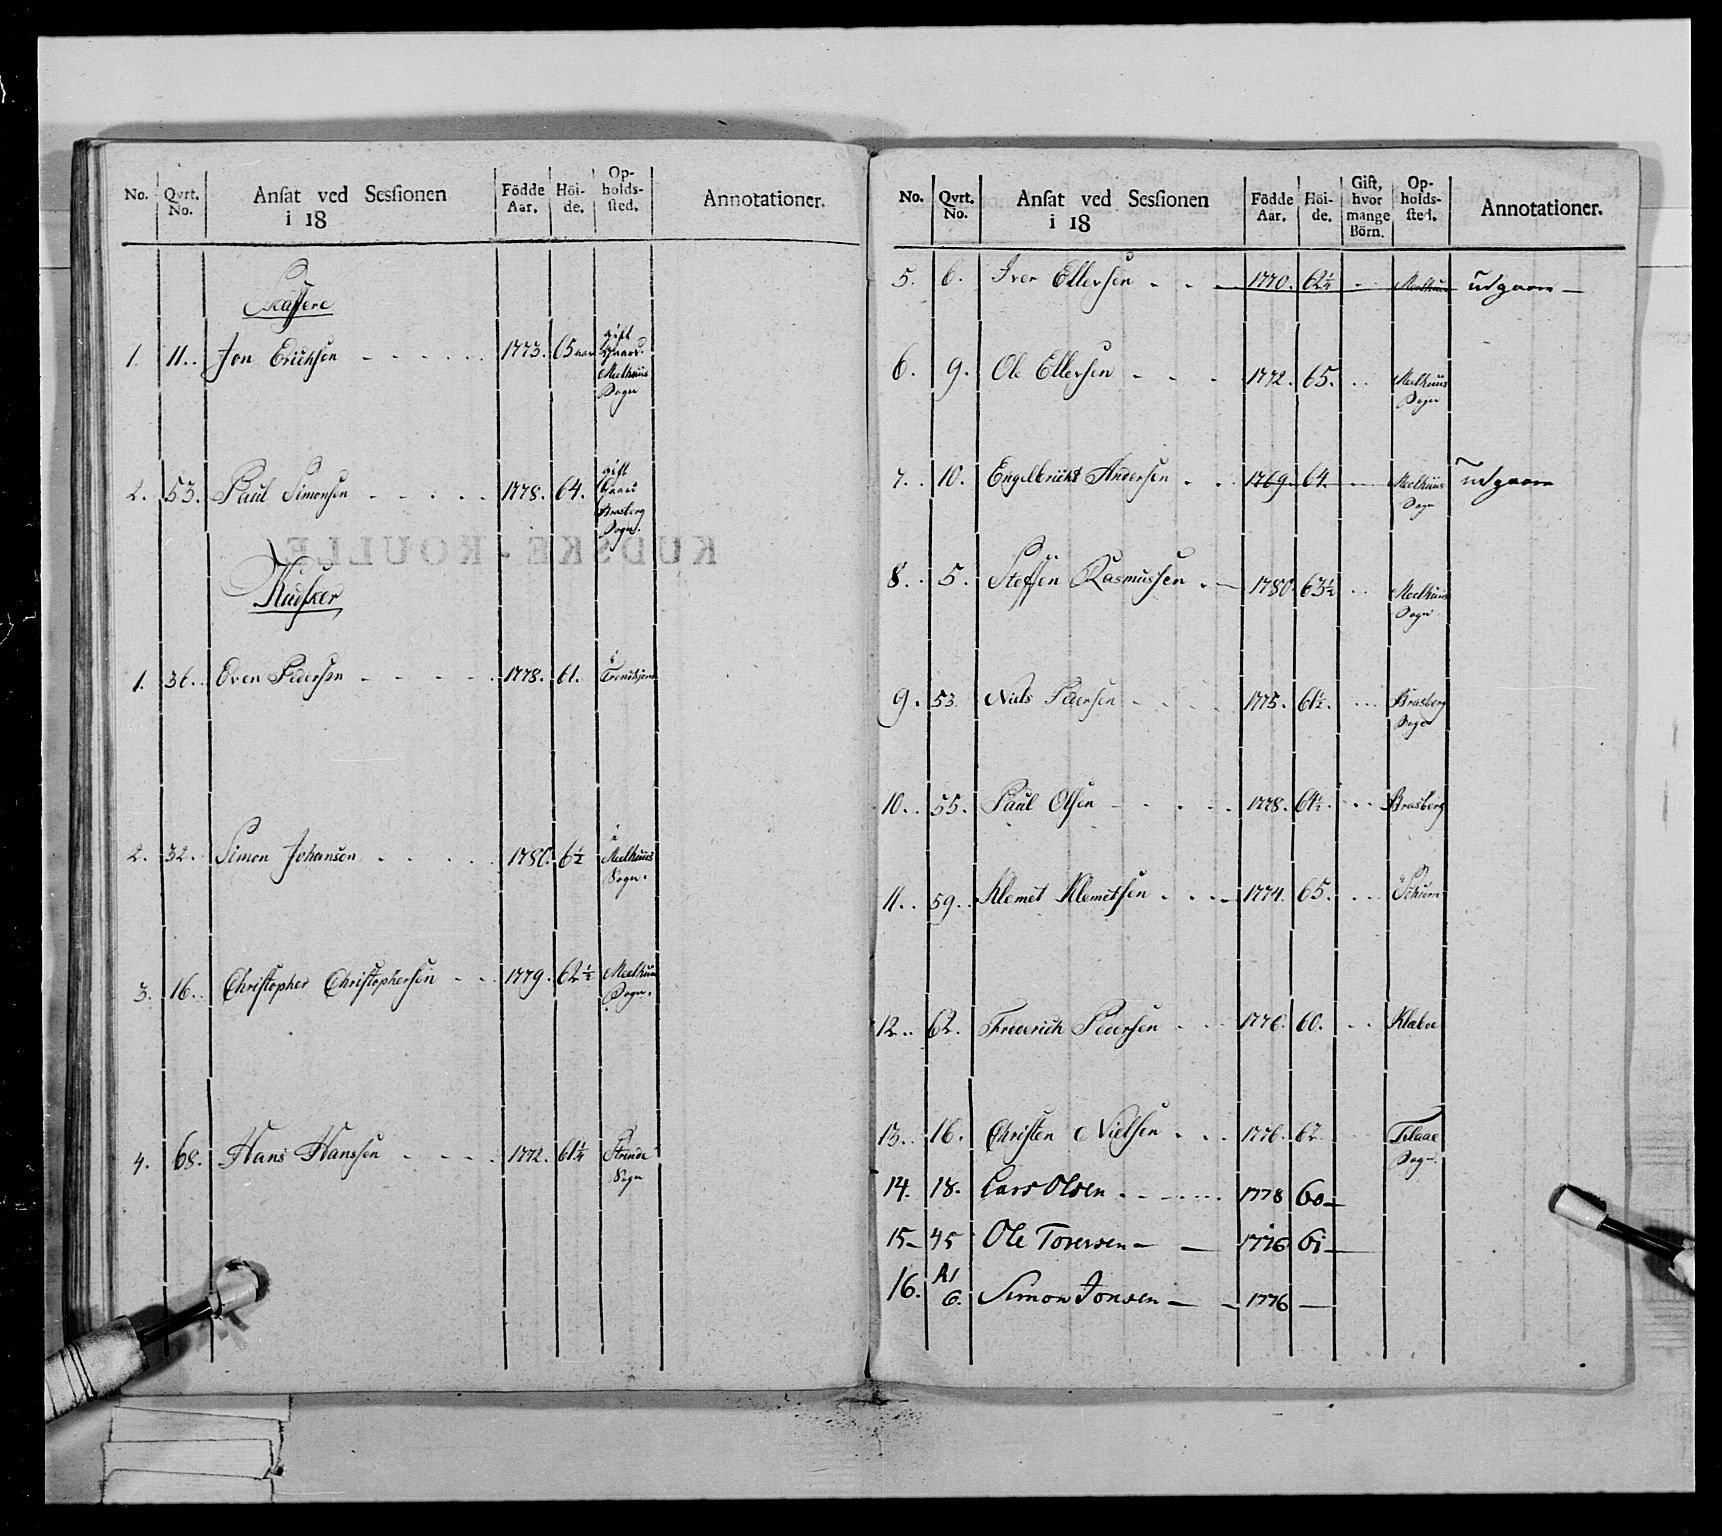 No. Qvrt. No. Ansat ved Sessionen i 18 Födde Aar. Höi-de. Op-holds-sted. Annotationer.
Skaffere
1. 11. Jon Erichsen 1773. 65 gift Meelhuus Sogn
2. 53. Paul Simonsen 1778. 64. gift Brasberg Sogn.
KUDSKE-ROULLE
Kudsker
1. 36. Even Pedersen 1778. 61. i Trondhjem
2. 32. Simon Johansen 1780. 6½ i Meelhuus Sogn.
3. 16. Christopher Christophersen 1779. 62½ Meelhuus Sogn.
4. 68. Hans Hanssen 1772. 61¼ Strinde Sogn
No. Qvrt. No. Ansat ved Sessionen i 18 Födde Aar. Höi-de. Gift, hvor mange Börn. Op-holds-sted. Annotationer.
5. 6. Iver Ellersen 1770. 62½ Meelhuus udgaaen
6. 9. Ole Ellersen 1772. 65. Meelhuus Sogn
7. 10. Engelbricht Andersen 1769. 64. Meelhuus Sogn udgaaen
8. 5. Steffen Rasmussen 1780. 63½ Meelhuus Sogn
9. 53. Niels Pedersen 1775. 61½. Brasberg Sogn
10. 55. Paul Olsen 1778. 64½. Brasberg
11. 59. Klemet Klemetsen 1774. 65.
12. 62. Frederich Pedersen 1776. 60. Klæboe
13. 16. Christen Nielsen 1776. 62. Flaae Sogn.
14. 18. Lars Olsen 1778 60
15 45 Ole Toresen 1776 61
16. 6. Simon Jonsen 1776